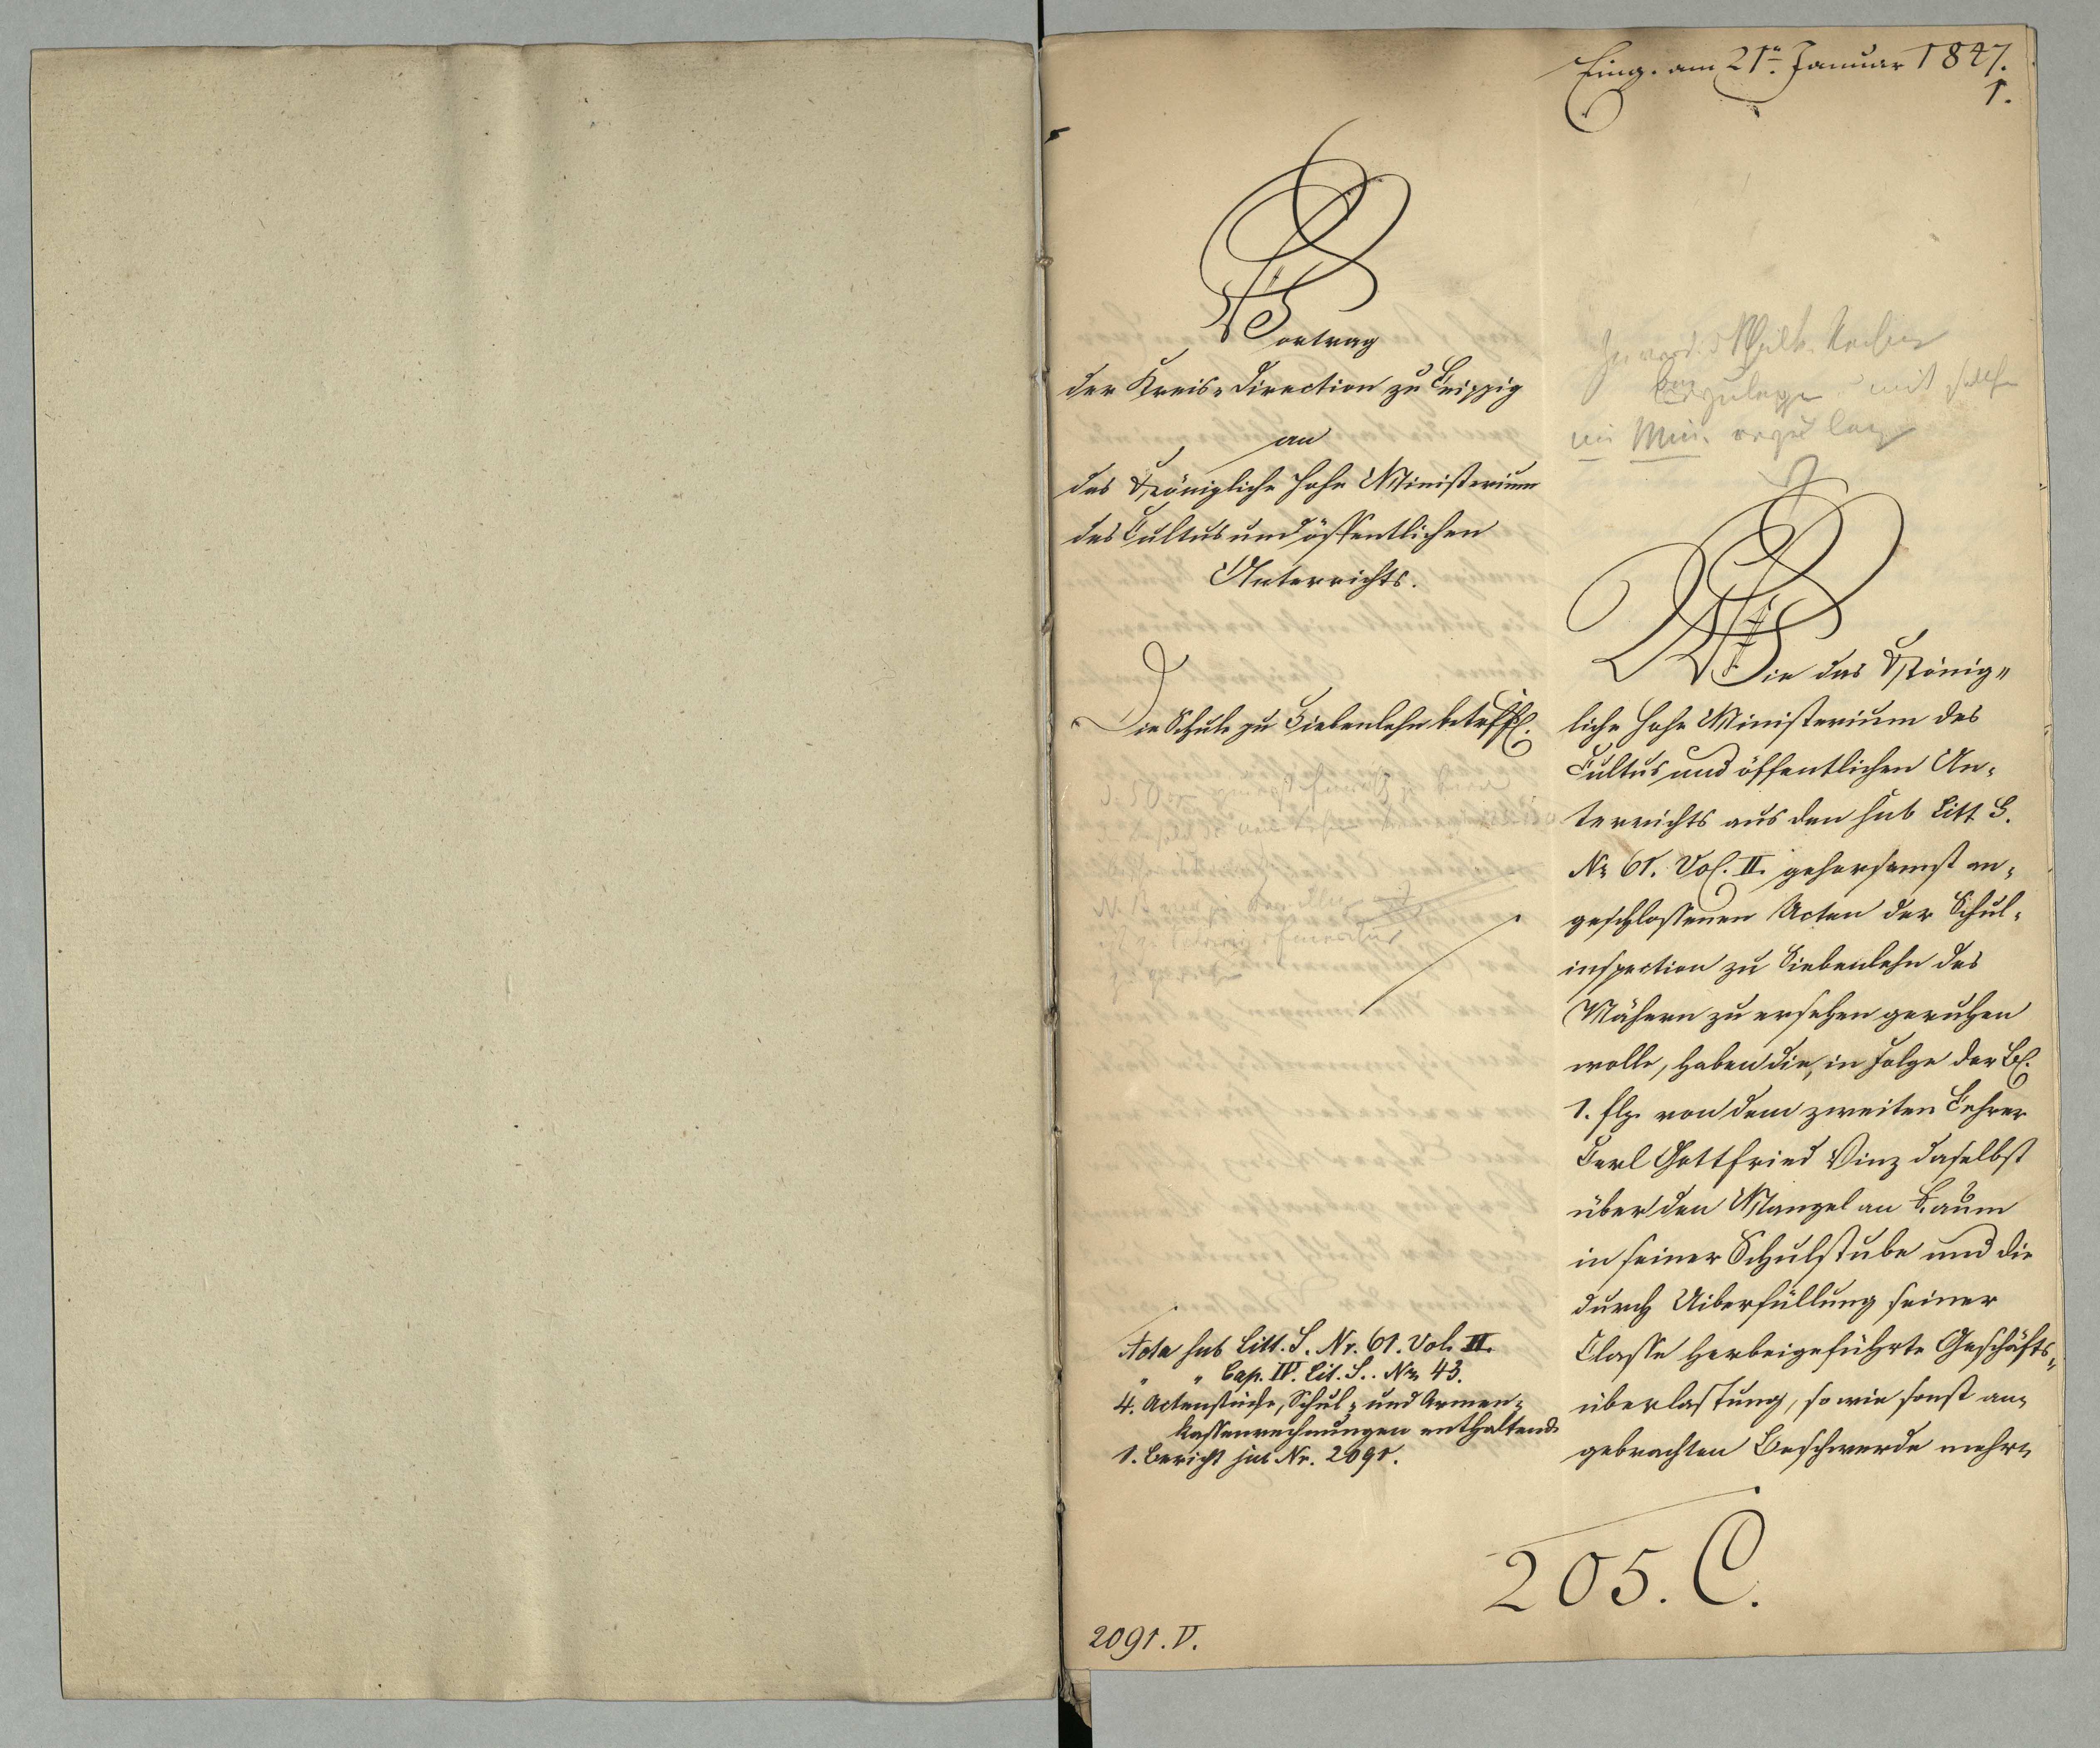 Eing. am 21n. Januar 1847.
1.
Vortrag
der Kreis-Direction zu Leipzig
an
das Königliche hohe Ministerium
des Cultus und öffentlichen
Unterrichts.
Die Schule zu Siebenlehn betreff.
Acta sub Litt. S. Nr. 61. Vol. II.
" " Cap. IV. Lit. S.. Nr. 43.
4. Actenstücke, Schul- und Armen-
kassenrechnungen enthaltend.
1. Bericht sub Nr. 2091.
2091. V.
Wie das König-
liche hohe Ministerium des
Cultus und öffentlichen Un-
terrichts aus den sub Litt. S.
Nr. 61. Vol. II. gehorsamst an-
geschlossenen Acten der Schul-
inspection zu Siebenlehn des
Nähern zu ersehen geruhen
wolle, haben die, in Folge der Bl.
1. flg. von dem zweiten Lehrer
Carl Gottfried Vinz daselbst
über den Mangel an Raum
in seiner Schulstube und die
durch Uiberfüllung seiner
Classe herbeigeführte Geschäfts-
überlastung, so wie sonst an-
gebrachten Beschwerde mehr-
205. C.